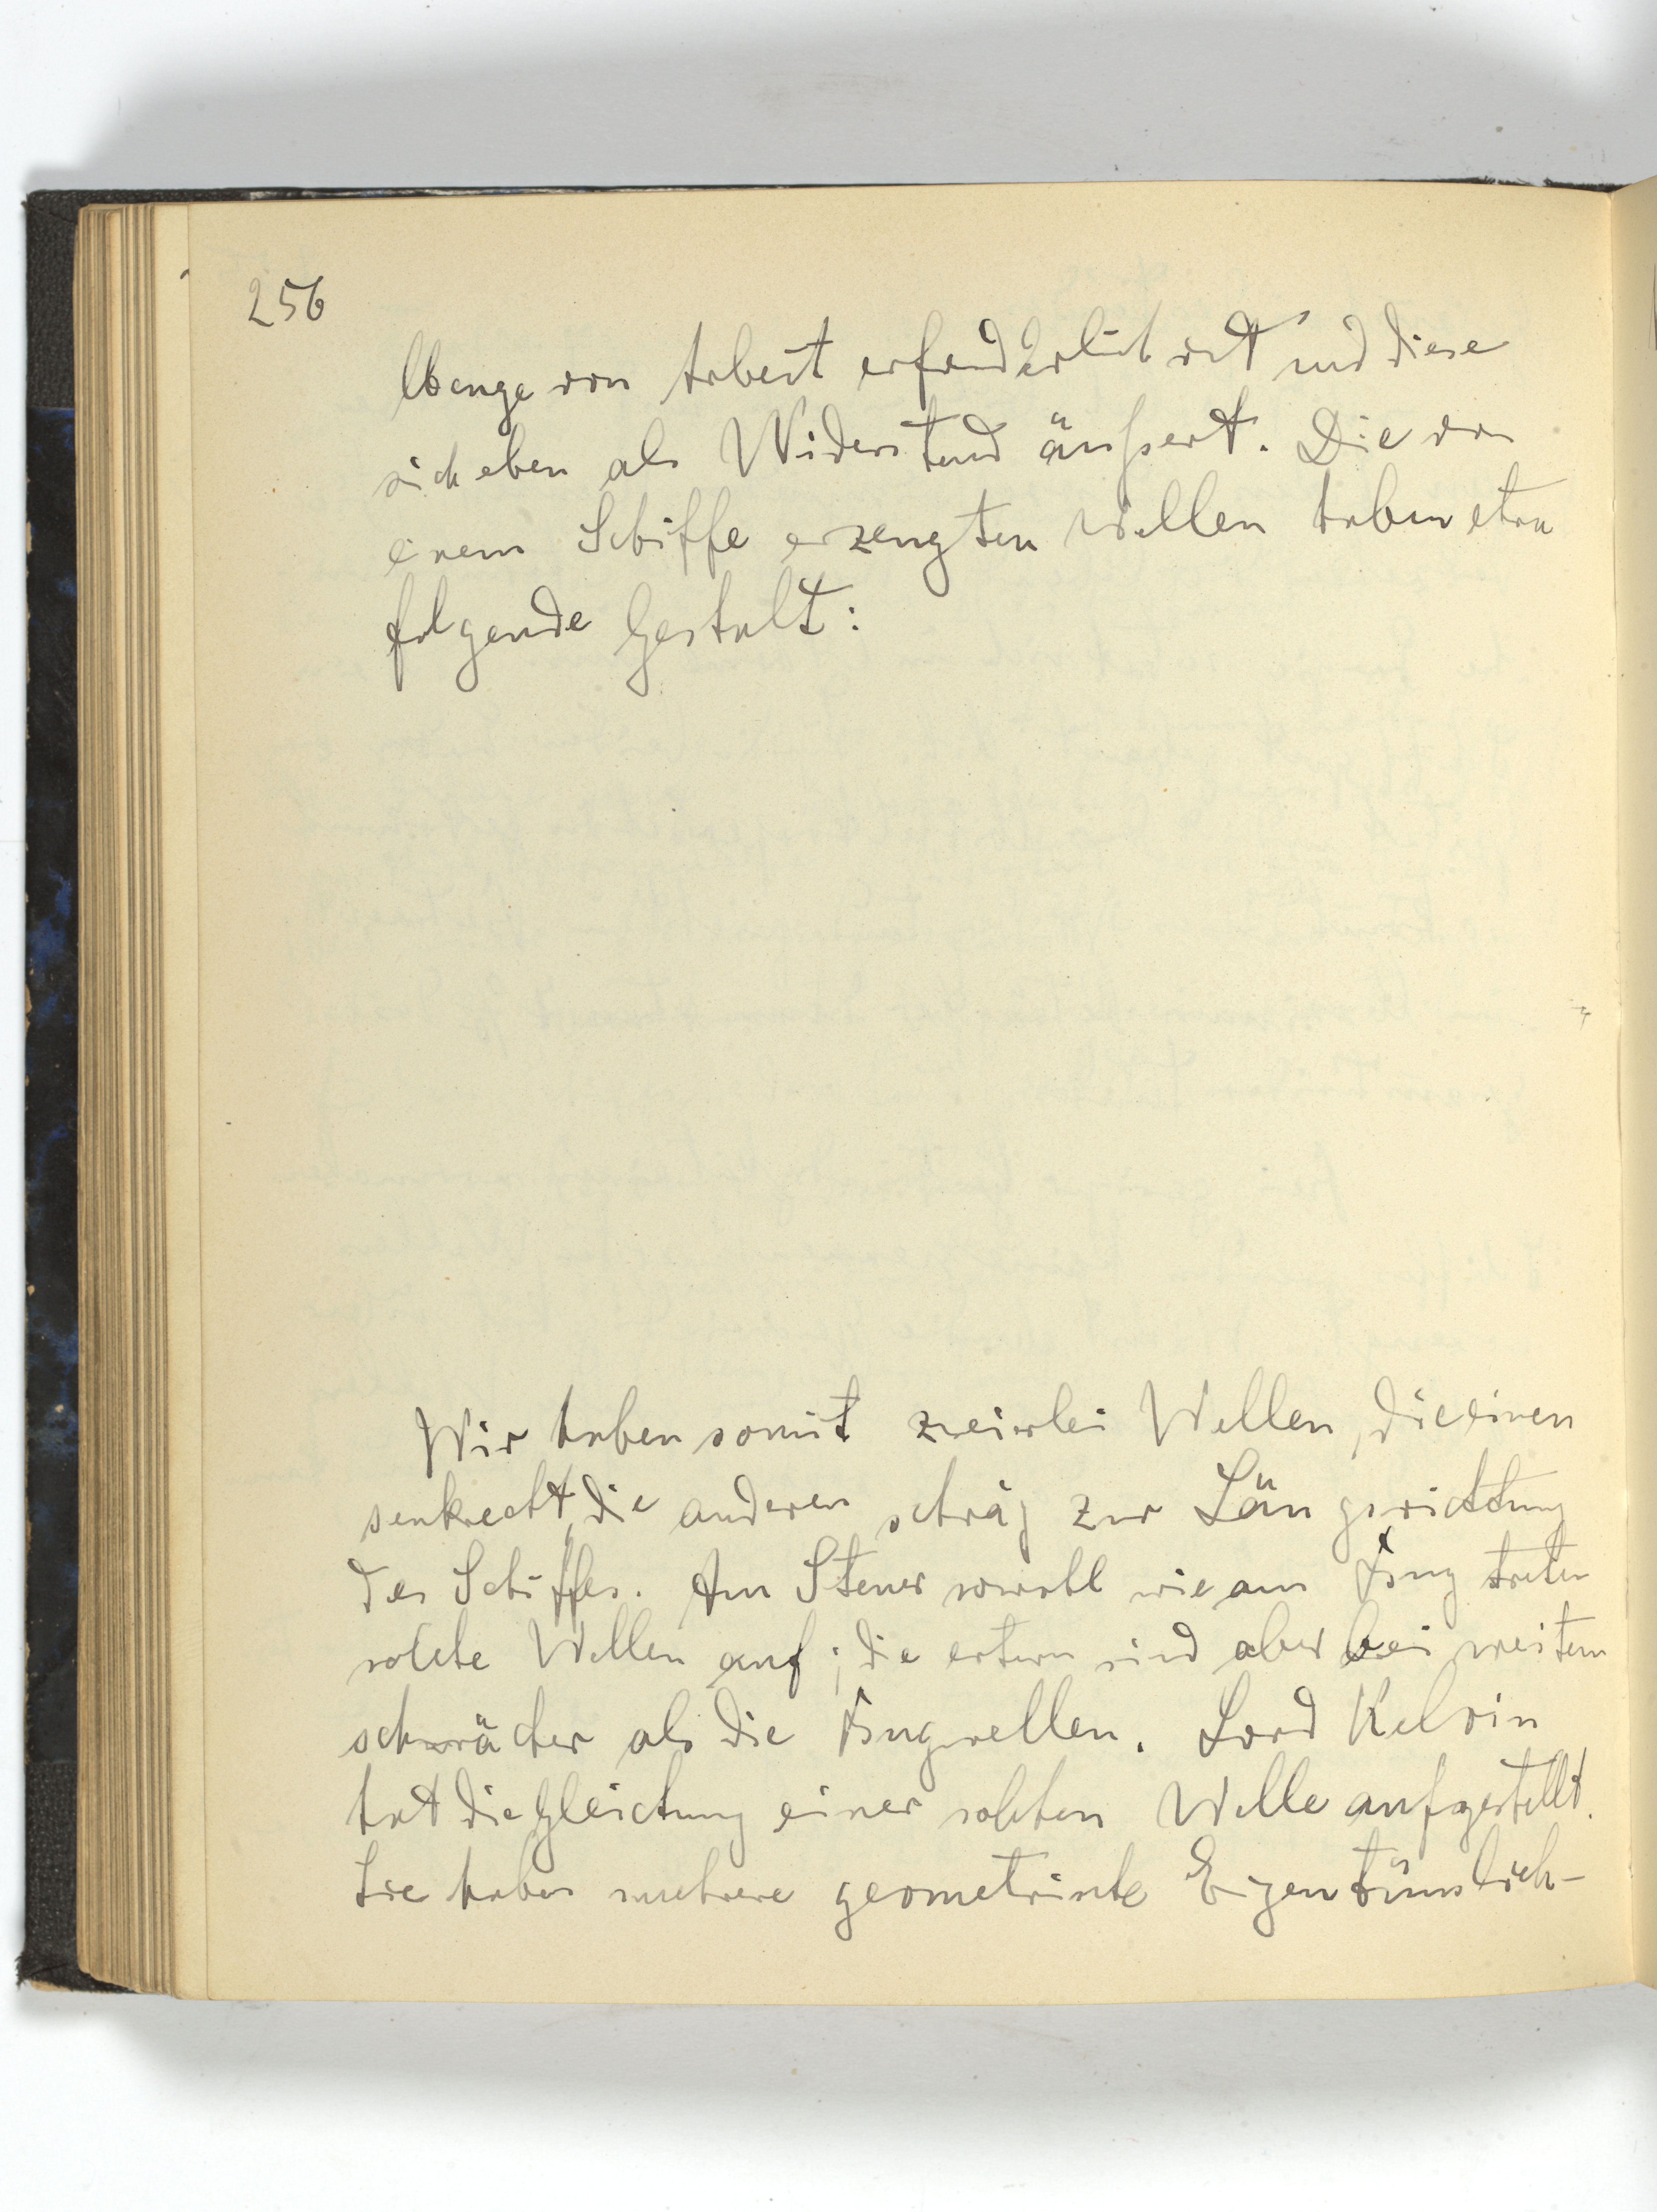 256
Menge von Arbeit erforderlich ist und diese
sich eben als Widerstand äußert. Die von
einem Schiffe erzeugten Wellen haben etwa
folgende Gestalt:
Wir haben somit zweierlei Wellen, die einen
senkrecht, die anderen schräg zur Längsrichtung
des Schiffes. Am Steuer sowohl wie am Bug treten
solche Wellen auf; die erstern sind aber bei weitem
schwächer als die Bugwellen. Lord Kelvin
hat die Gleichung einer solchen Welle aufgestellt.
Sie haben mehrere geometrische Eigentümlich-